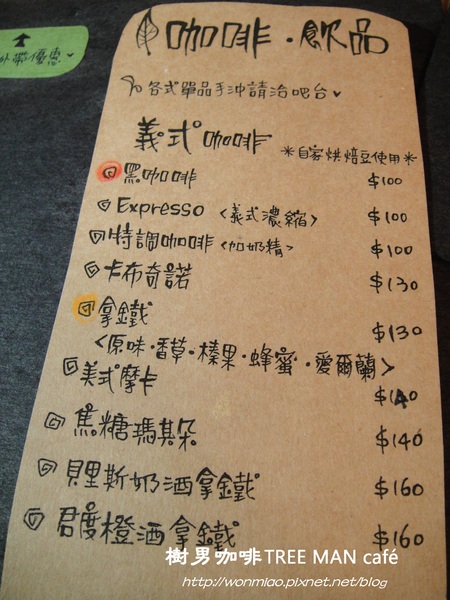 外帶優惠
咖啡・飲品
各式單品手沖請洽吧台
義式咖啡 ＊自家烘焙豆使用＊
黑咖啡 $100
Expresso <義式濃縮> $100
特調咖啡 <加奶精> $100
卡布奇諾 $130
拿鐵 $130
<原味・香草・榛果・蜂蜜・愛爾蘭>
美式摩卡 $140
焦糖瑪其朵 $140
貝里斯奶酒拿鐵 $160
君度橙酒拿鐵 $160
樹男咖啡TREE MAN café
http://wonmiao.pixnet.net/blog